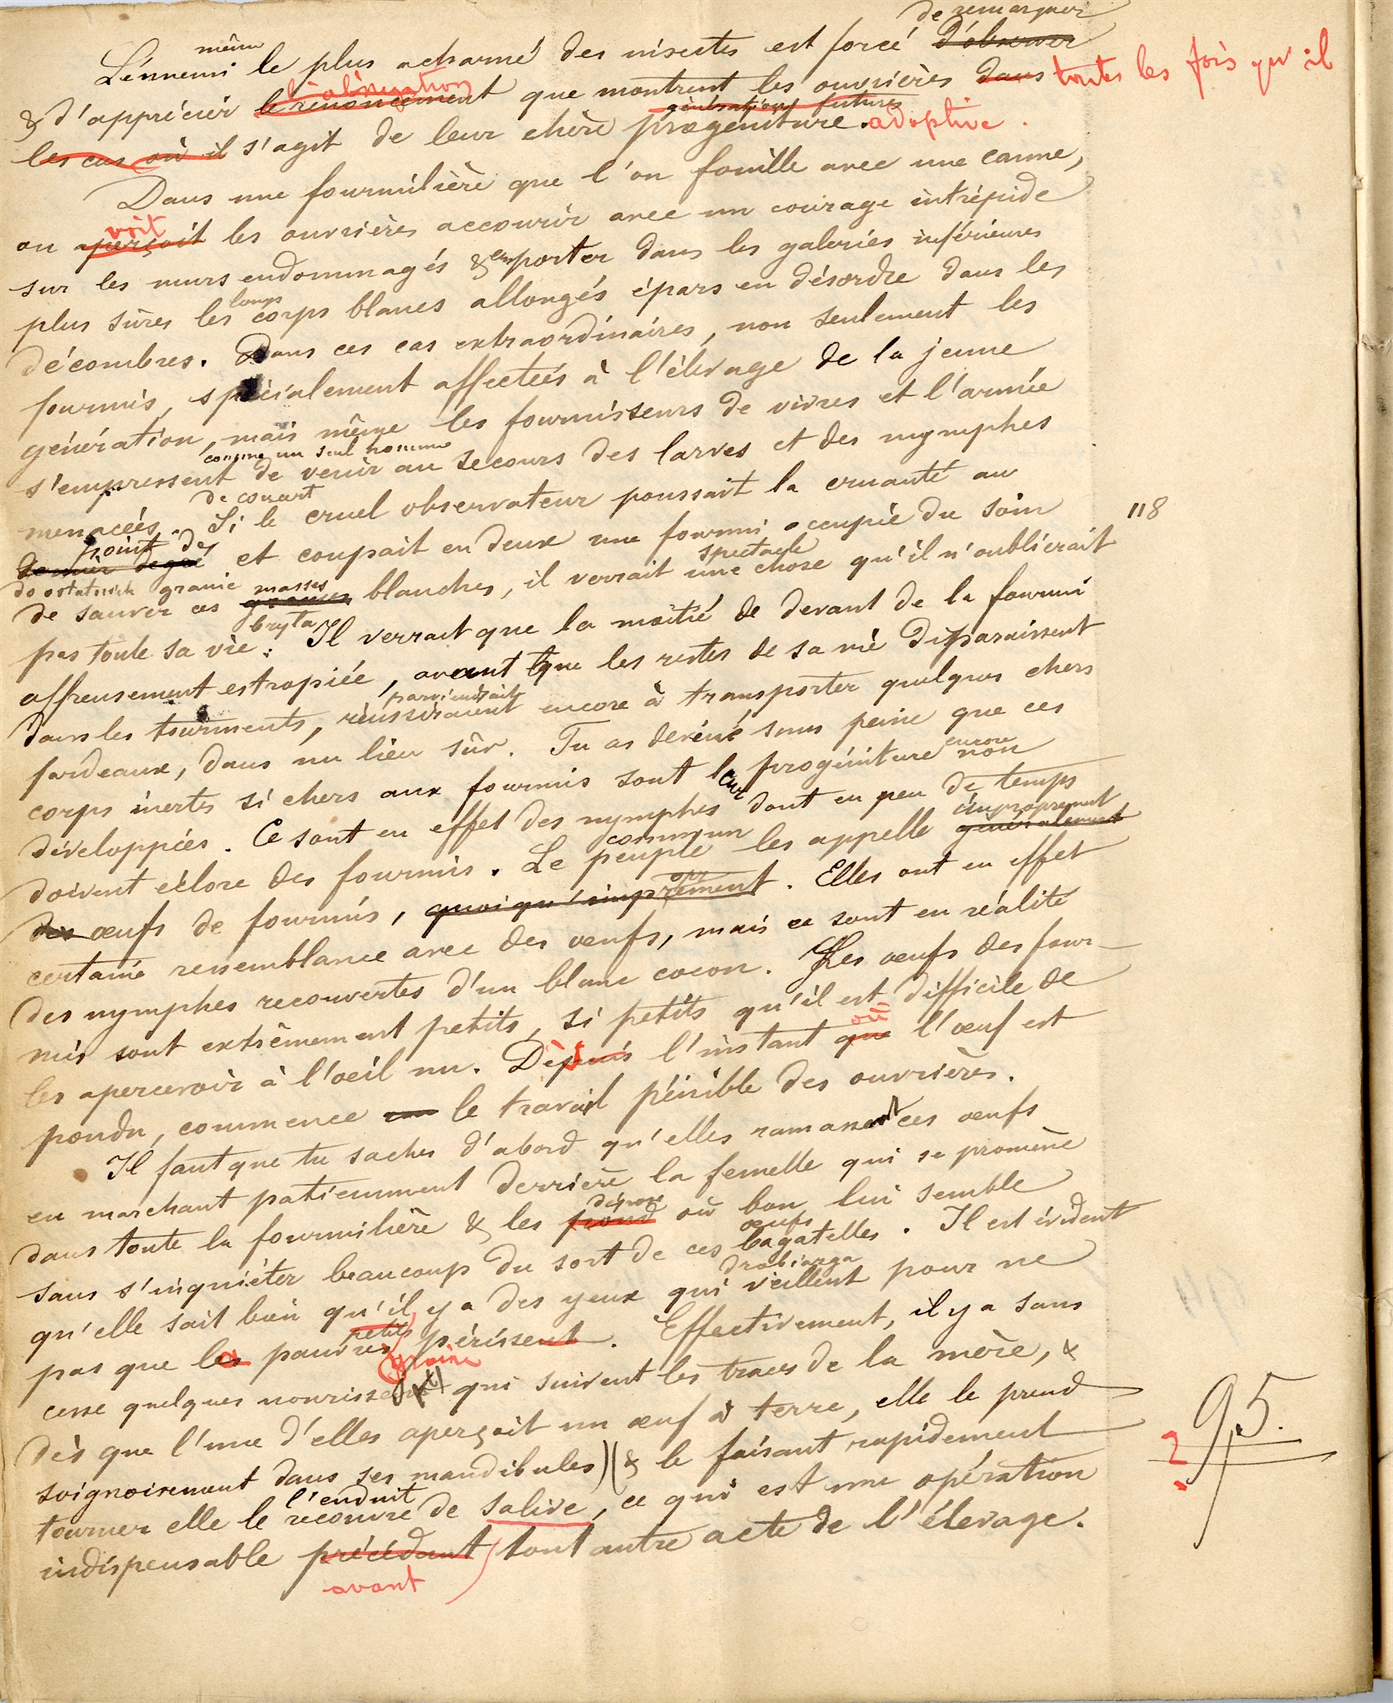 de remarquer
même
L'énnemi le plus acharné des insectes est forcé d'observer
l'abnégation
& d'apprécier le renoncement que montrent les ouvrières dans toutes les fois qu'il
générations futures
les cas où il s'agit de leur chère progéniture. adoptive.
Dans une fourmilière que l'on fouille avec une canne,
voit
on aperçoit les ouvrières accourir avec un courage intrépide
sur les murs endommagés & emporter dans les galeries inférieures
longs
plus sûres les corps blancs allongés épars en désordre dans les
décombres. Dans ces cas extraordinaires, non seulement les
fourmis, spécialement affectées à l'élevage de la jeune
génération, mais même les fournisseurs de vivres et l'armée
comme un seul homme
s'empressent de venir au secours des larves et des nymphes
de concert
menacées. Si le cruel observateur poussait la cruauté au
point de
dernier degré et coupait en deux une fourmi occupée du soin
118
do ostatnich granic masses spectacle
de sauver ces graines blanches, il verrait une chose qu'il n'oublierait
bryła
pas toute sa vie. Il verrait que la moitié de devant de la fourmi
affreusement estropiée, avant que les restes de sa vie disparaissent
parviendrait
dans les tourments, réussiraient encore à transporter quelques chers
fardeaux, dans un lieu sûr. Tu as deviné, sans peine que ces
encore
corps inertes si chers aux fourmis sont leur progéniture non
développées. Ce sont en effet des nymphes dont en peu de temps
commun improprement
doivent éclore des fourmis. Le peuple les appelle généralement
des œufs de fourmis, quoiqu'improprement. Elles ont en effet
certaine ressemblance avec des œufs, mais ce sont en réalité
des nymphes recouvertes d'un blanc cocon. Les œufs des four-
mis sont extrêmement petits, si petits qu'il est difficile de
où
les apercevoir à l'oeil nu. Depuis l'instant que l'œuf est
pondu, commence le travail pénible des ouvrières.
Il faut que tu saches d'abord qu'elles ramassent ces œufs
en marchant patiemment derrière la femelle qui se promène
dépose
dans toute la fourmilière & les pond où bon lui semble
œufs
sans s'inquiéter beaucoup du sort de ces bagatelles. Il est évident
drobiazga
qu'elle sait bien qu'il y a des yeux qui veillent pour ne
petits
pas que les pauvres périssent. Effectivement, il y a sans
cesse quelques nourrisses qui suivent les traces de la mère, &
dès que l'une d'elles aperçoit un œuf à terre, elle le prend
soignoisement dans ses mandibules) (& le faisant rapidement
95.
2
l'enduit
tourner elle le recouvre de salive, ce qui est une opération
indispensable précédant tout autre acte de l'élevage.
avant